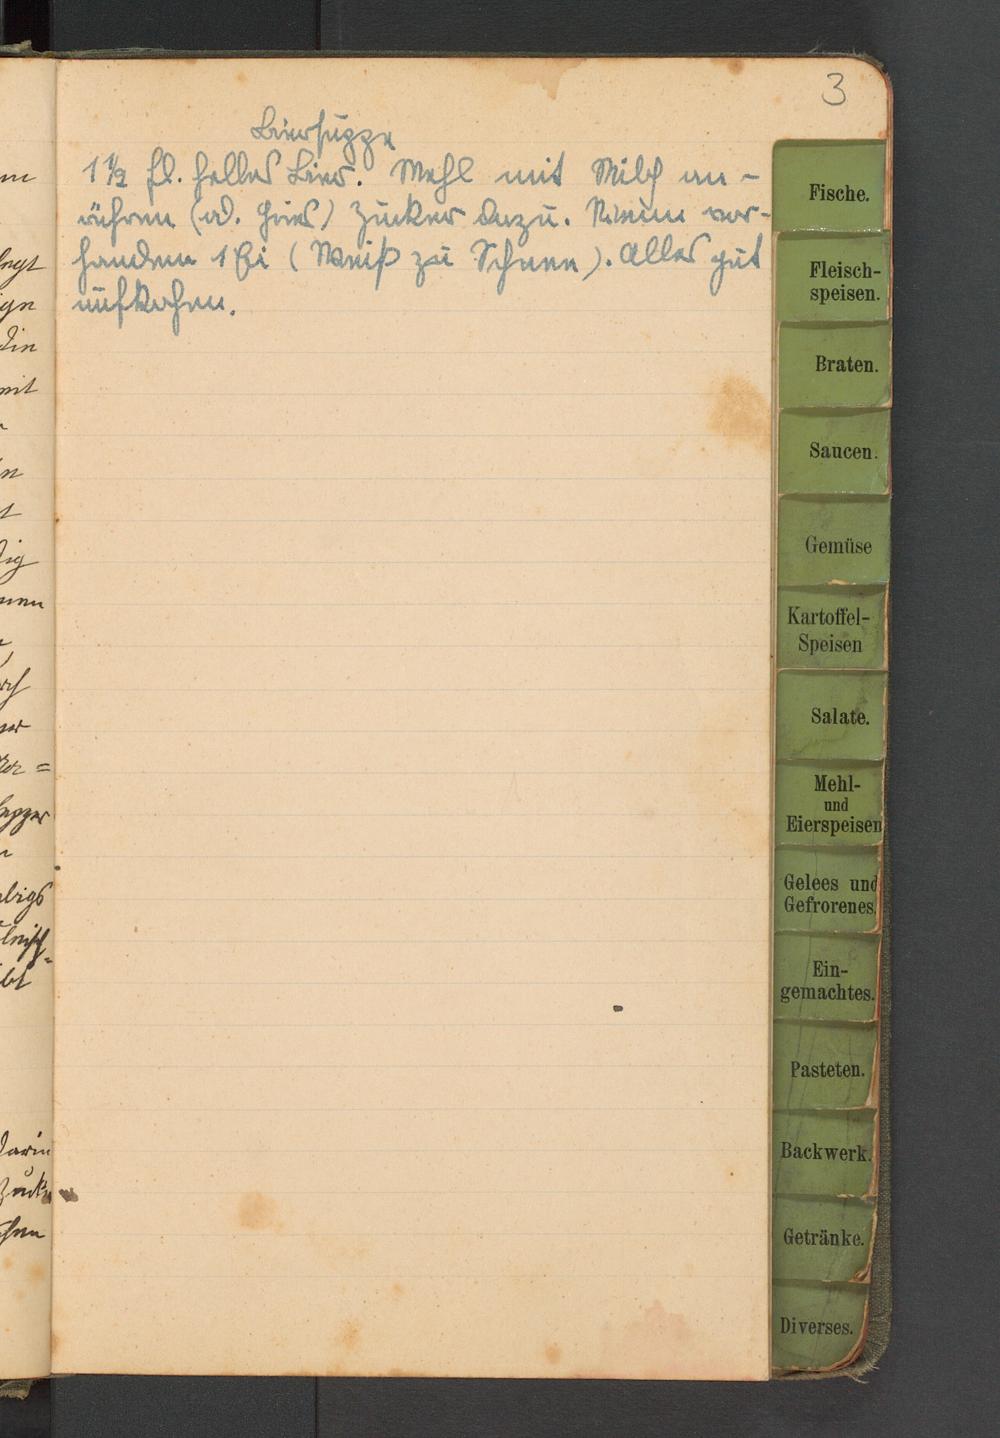 3
Biersuppe
1 ½ fl. helles Bier. Mehl mit Milch an-
rühren (od. Gries) Zucker dazu. Wenn vor-
handen 1 Ei (Weiß zu Schnee). Alles gut
aufkochen.
Fische.
Fleisch-
speisen.
Braten.
Saucen.
Gemüse
Kartoffel-
Speisen
Salate.
Mehl-
und
Eierspeisen
Gelees und
Gefrorenes.
Ein-
gemachtes.
Pasteten.
Backwerk.
Getränke.
Diverses.